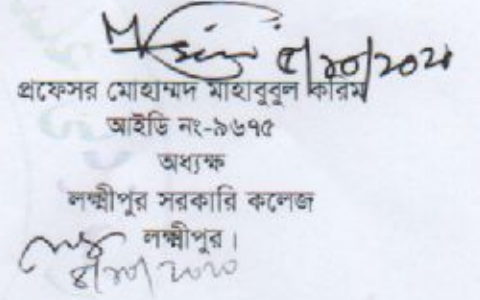 ৫/১০/২০২১
প্রফেসর মোহাম্মদ মাহাবুবুল করিম
আইডি নং-৯৬৭৫
অধ্যক্ষ
লক্ষ্মীপুর সরকারি কলেজ
লক্ষ্মীপুর।